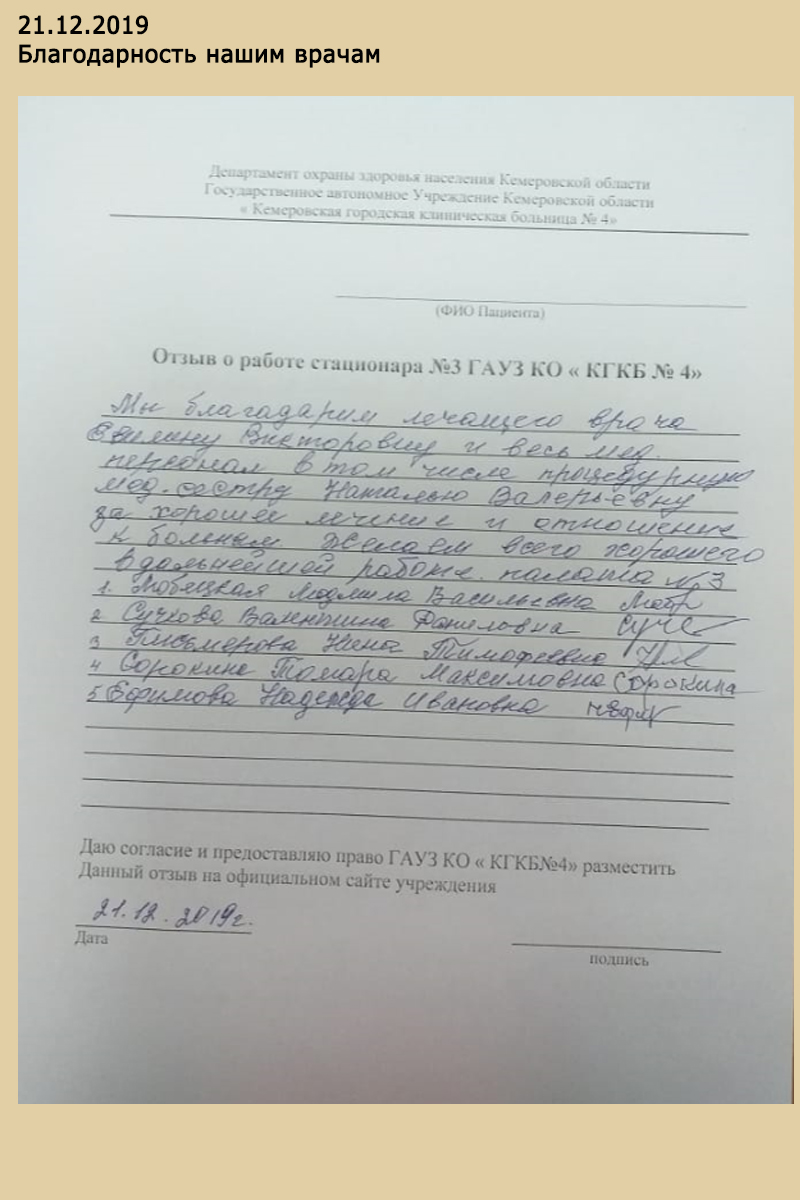 21.12.2019
Благодарность нашим врачам
Департамент охраны здоровья населения Кемеровской области
Государственное автономное Учреждение Кемеровской области
« Кемеровская городская клиническая больница № 4»
(ФИО Пациента)
Отзыв о работе стационара №3 ГАУЗ КО « КГКБ № 4»
Мы благодарим лечащего врача
Викторовну и весь мед.
персонал в том числе процедурную
мед. сестру Наталью Валерьевну
за хорошее лечение и отношение
к больным Желаем всего хорошего
в дальнейшей работе. палата №3
1. Людмила Васильевна
2 Сучкова Валентина Даниловна
3 Письмерова Нина Тимофеевна
4 Сорокина Тамара Максимовна Сорокина
5 Ефимова Надежда Ивановна
Даю согласие и предоставляю право ГАУЗ КО « КГКБ№4» разместить
Данный отзыв на официальном сайте учреждения
21.12.2019г.
Дата
подпись